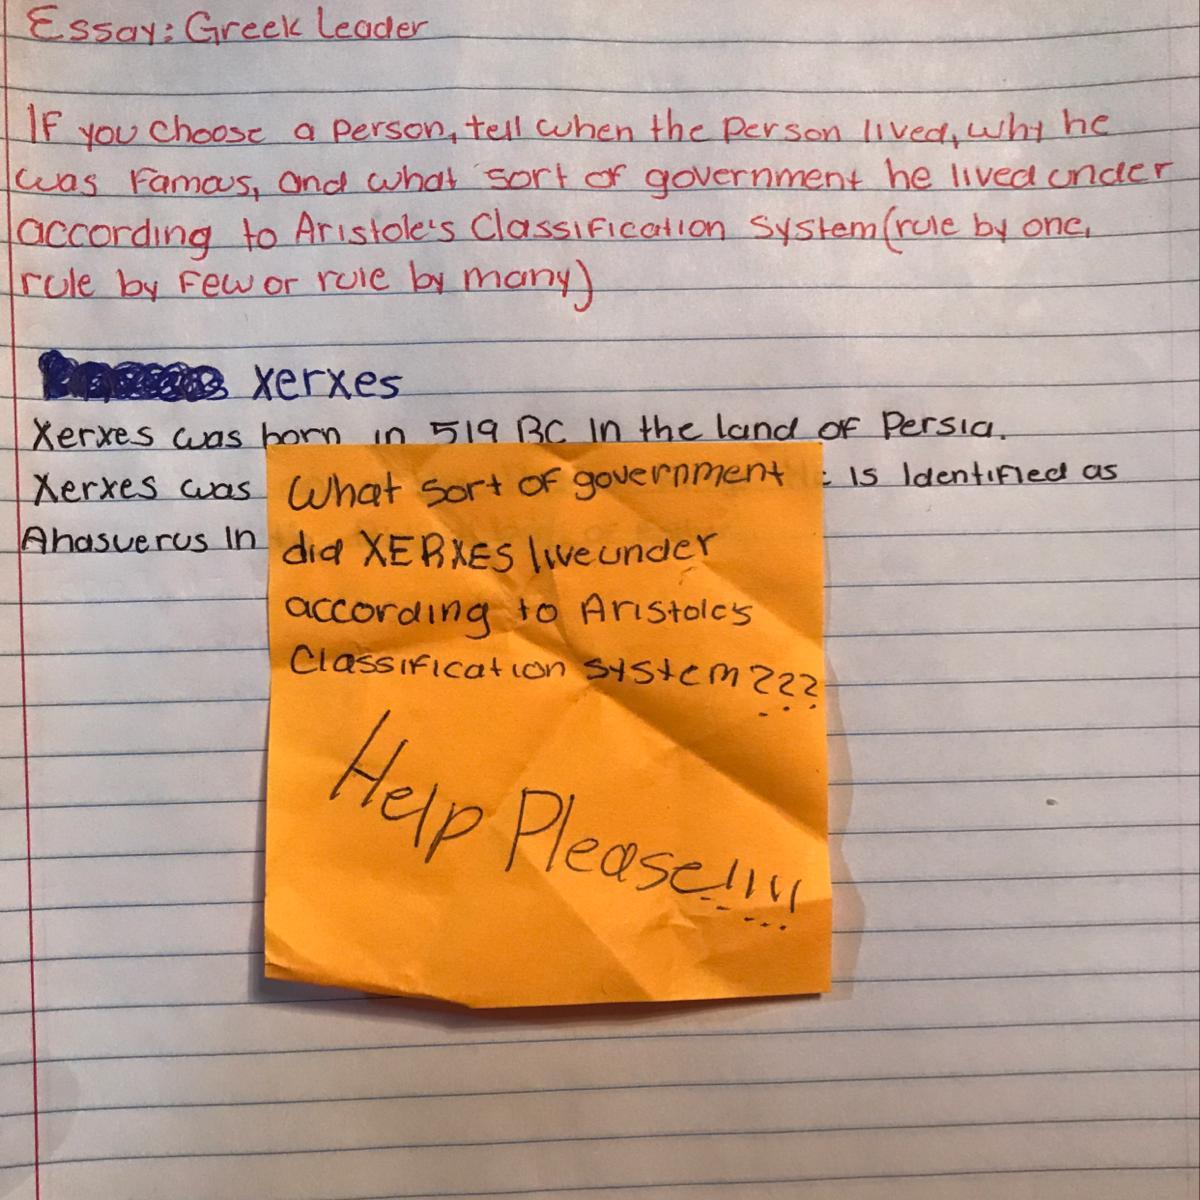 Essay: Greek Leader
If you choose a person, tell when the person lived, why he
was Famous, and what sort of government he lived under
according to Aristole's Classification System (rule by one,
rule by Few or rule by many)
Xerxes
Xerxes was born in 519 BC In the land of Persia.
Xerxes was
is Identified as
Ahasuerus In
What sort of government
did XERXES live under
according to Aristole's
Classification system???
Help Please!!!!!